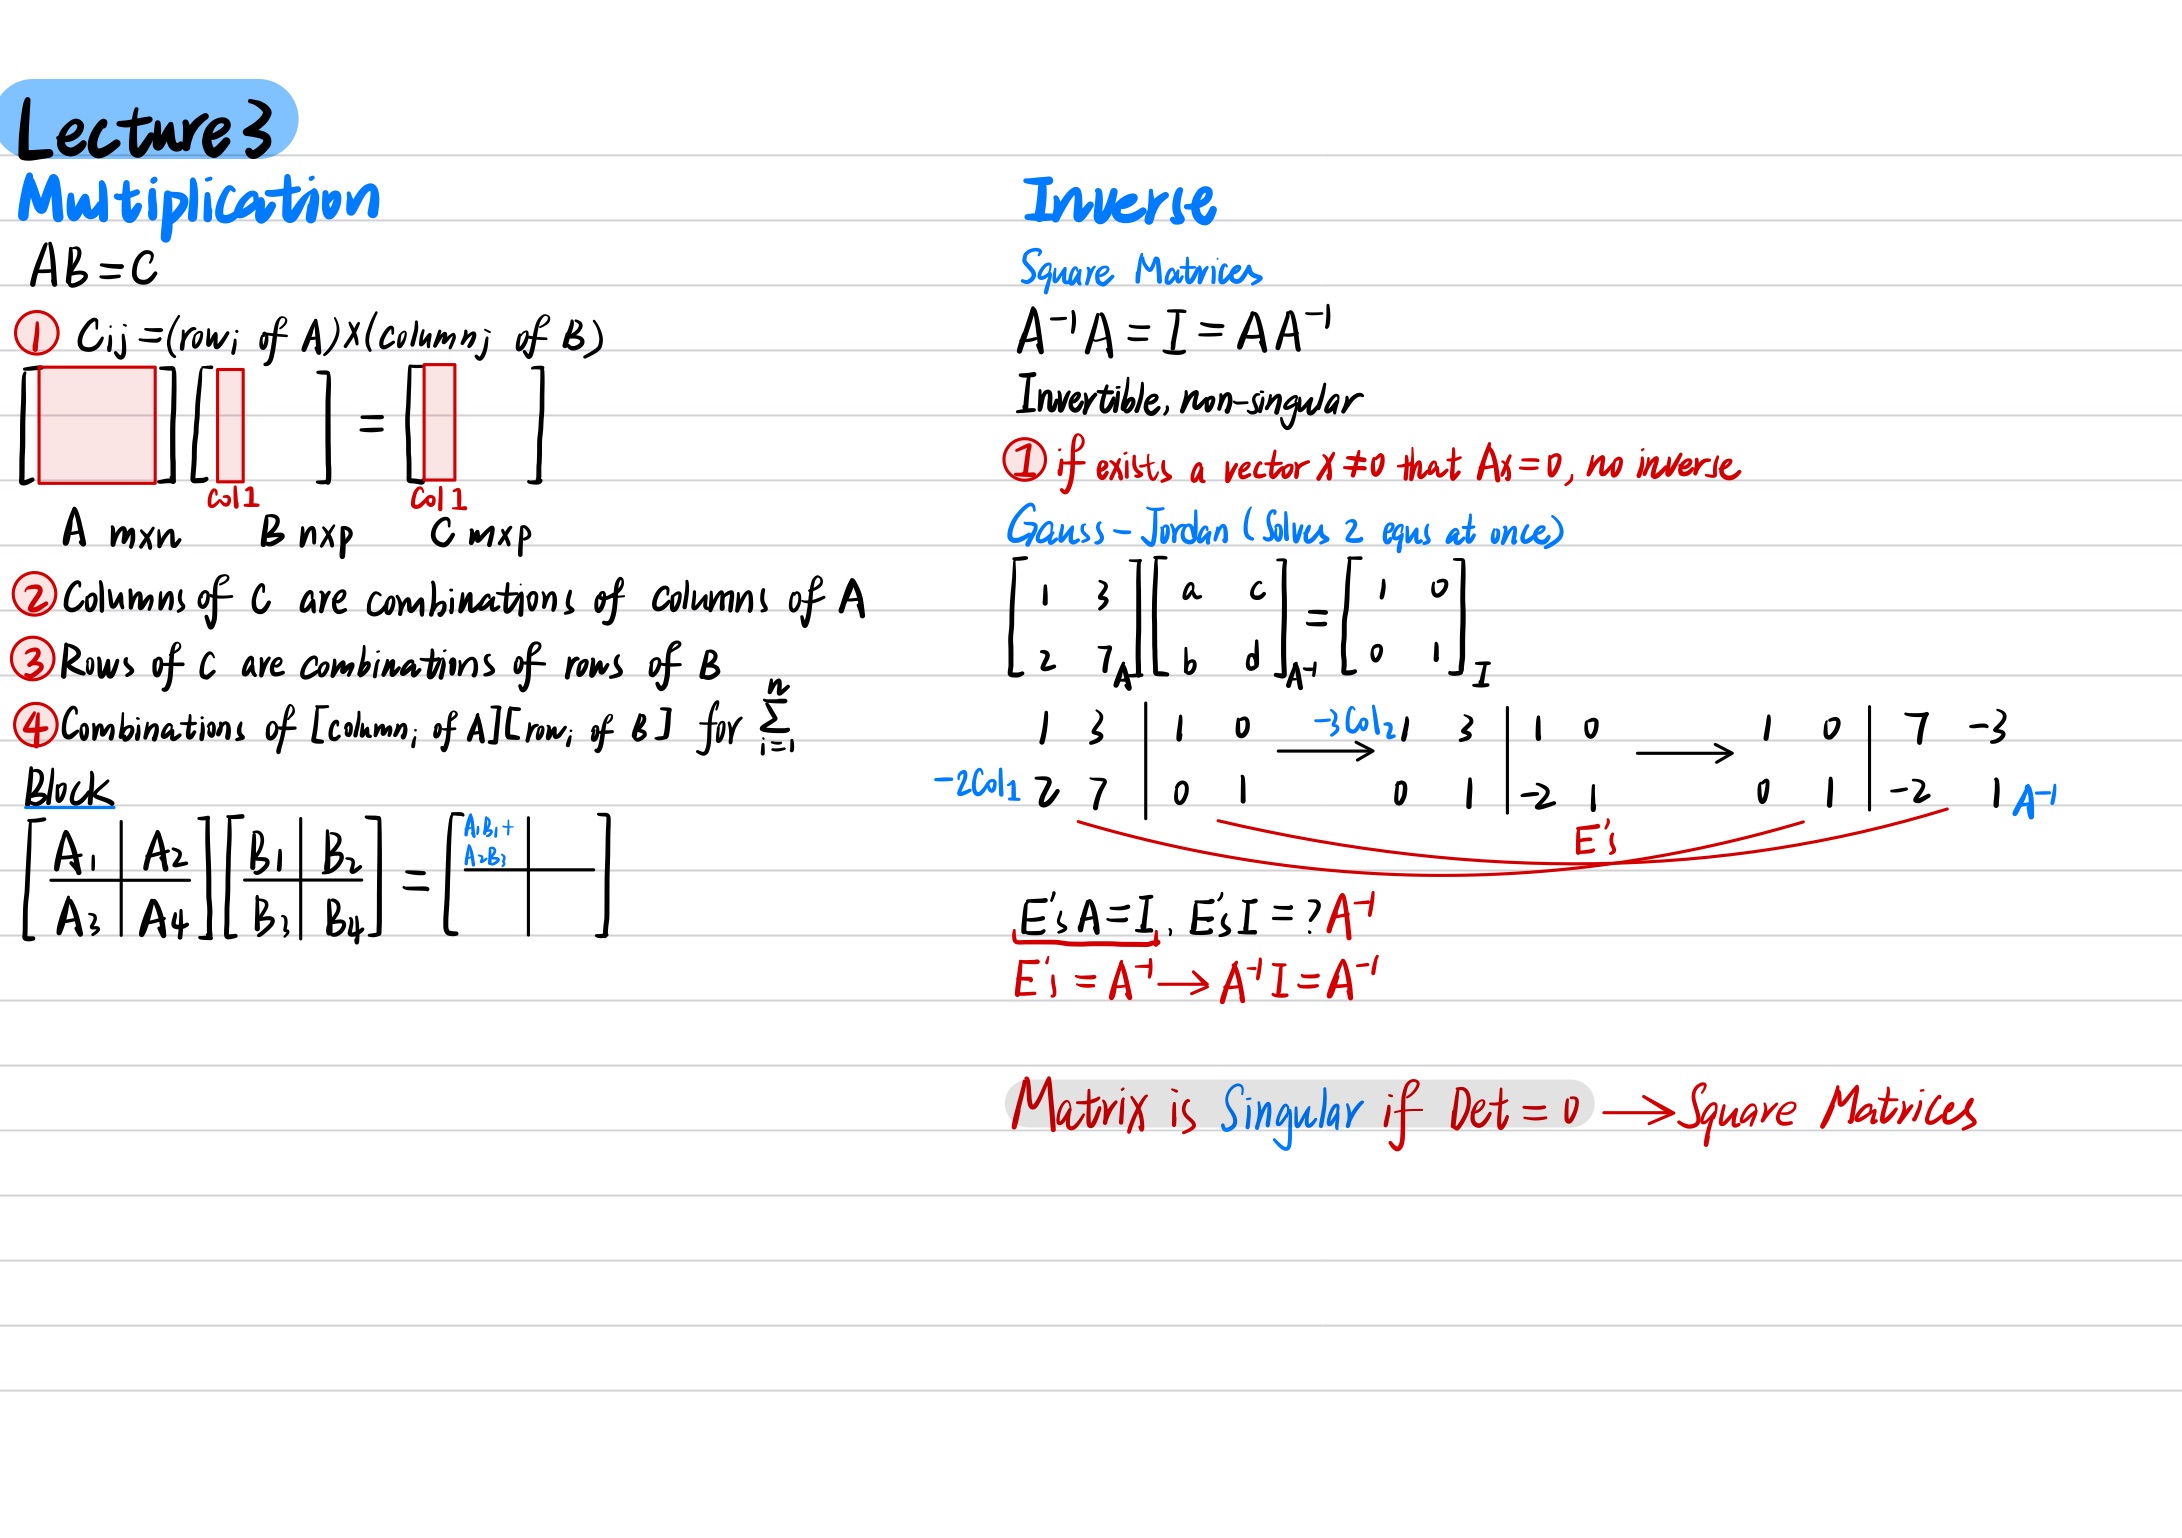 Lecture 3
Multiplication
AB = C
① Cij = (rowi of A)×(columnj of B)
[ ] [ ] = [ ]
Col1 Col1
A m×n B n×p C m×p
② Columns of C are combinations of columns of A
③ Rows of C are combinations of rows of B
④ Combinations of [columni of A][rowi of B] for n∑i=1
Block
[A1 | A2] [B1 | B2] = [A1B1 + A2B3 | ]
[A3 | A4] [B3 | B4] [ | ]
Inverse
Square Matrices
A⁻¹A = I = AA⁻¹
Invertible, non-singular
① if exists a vector x ≠ 0 that Ax = 0, no inverse
Gauss-Jordan (Solves 2 equs at once)
[1 3] [a c] = [1 0]
[2 7]A [b d]A⁻¹ [0 1]I
1 3 | 1 0 → -3Col2 1 3 | 1 0 → 1 0 | 7 -3
-2Col1 2 7 | 0 1 0 1 | -2 1 0 1 | -2 1 A⁻¹
E's
E's A = I, E's I = ? A⁻¹
E's = A⁻¹ → A⁻¹ I = A⁻¹
Matrix is Singular if Det = 0 → Square Matrices